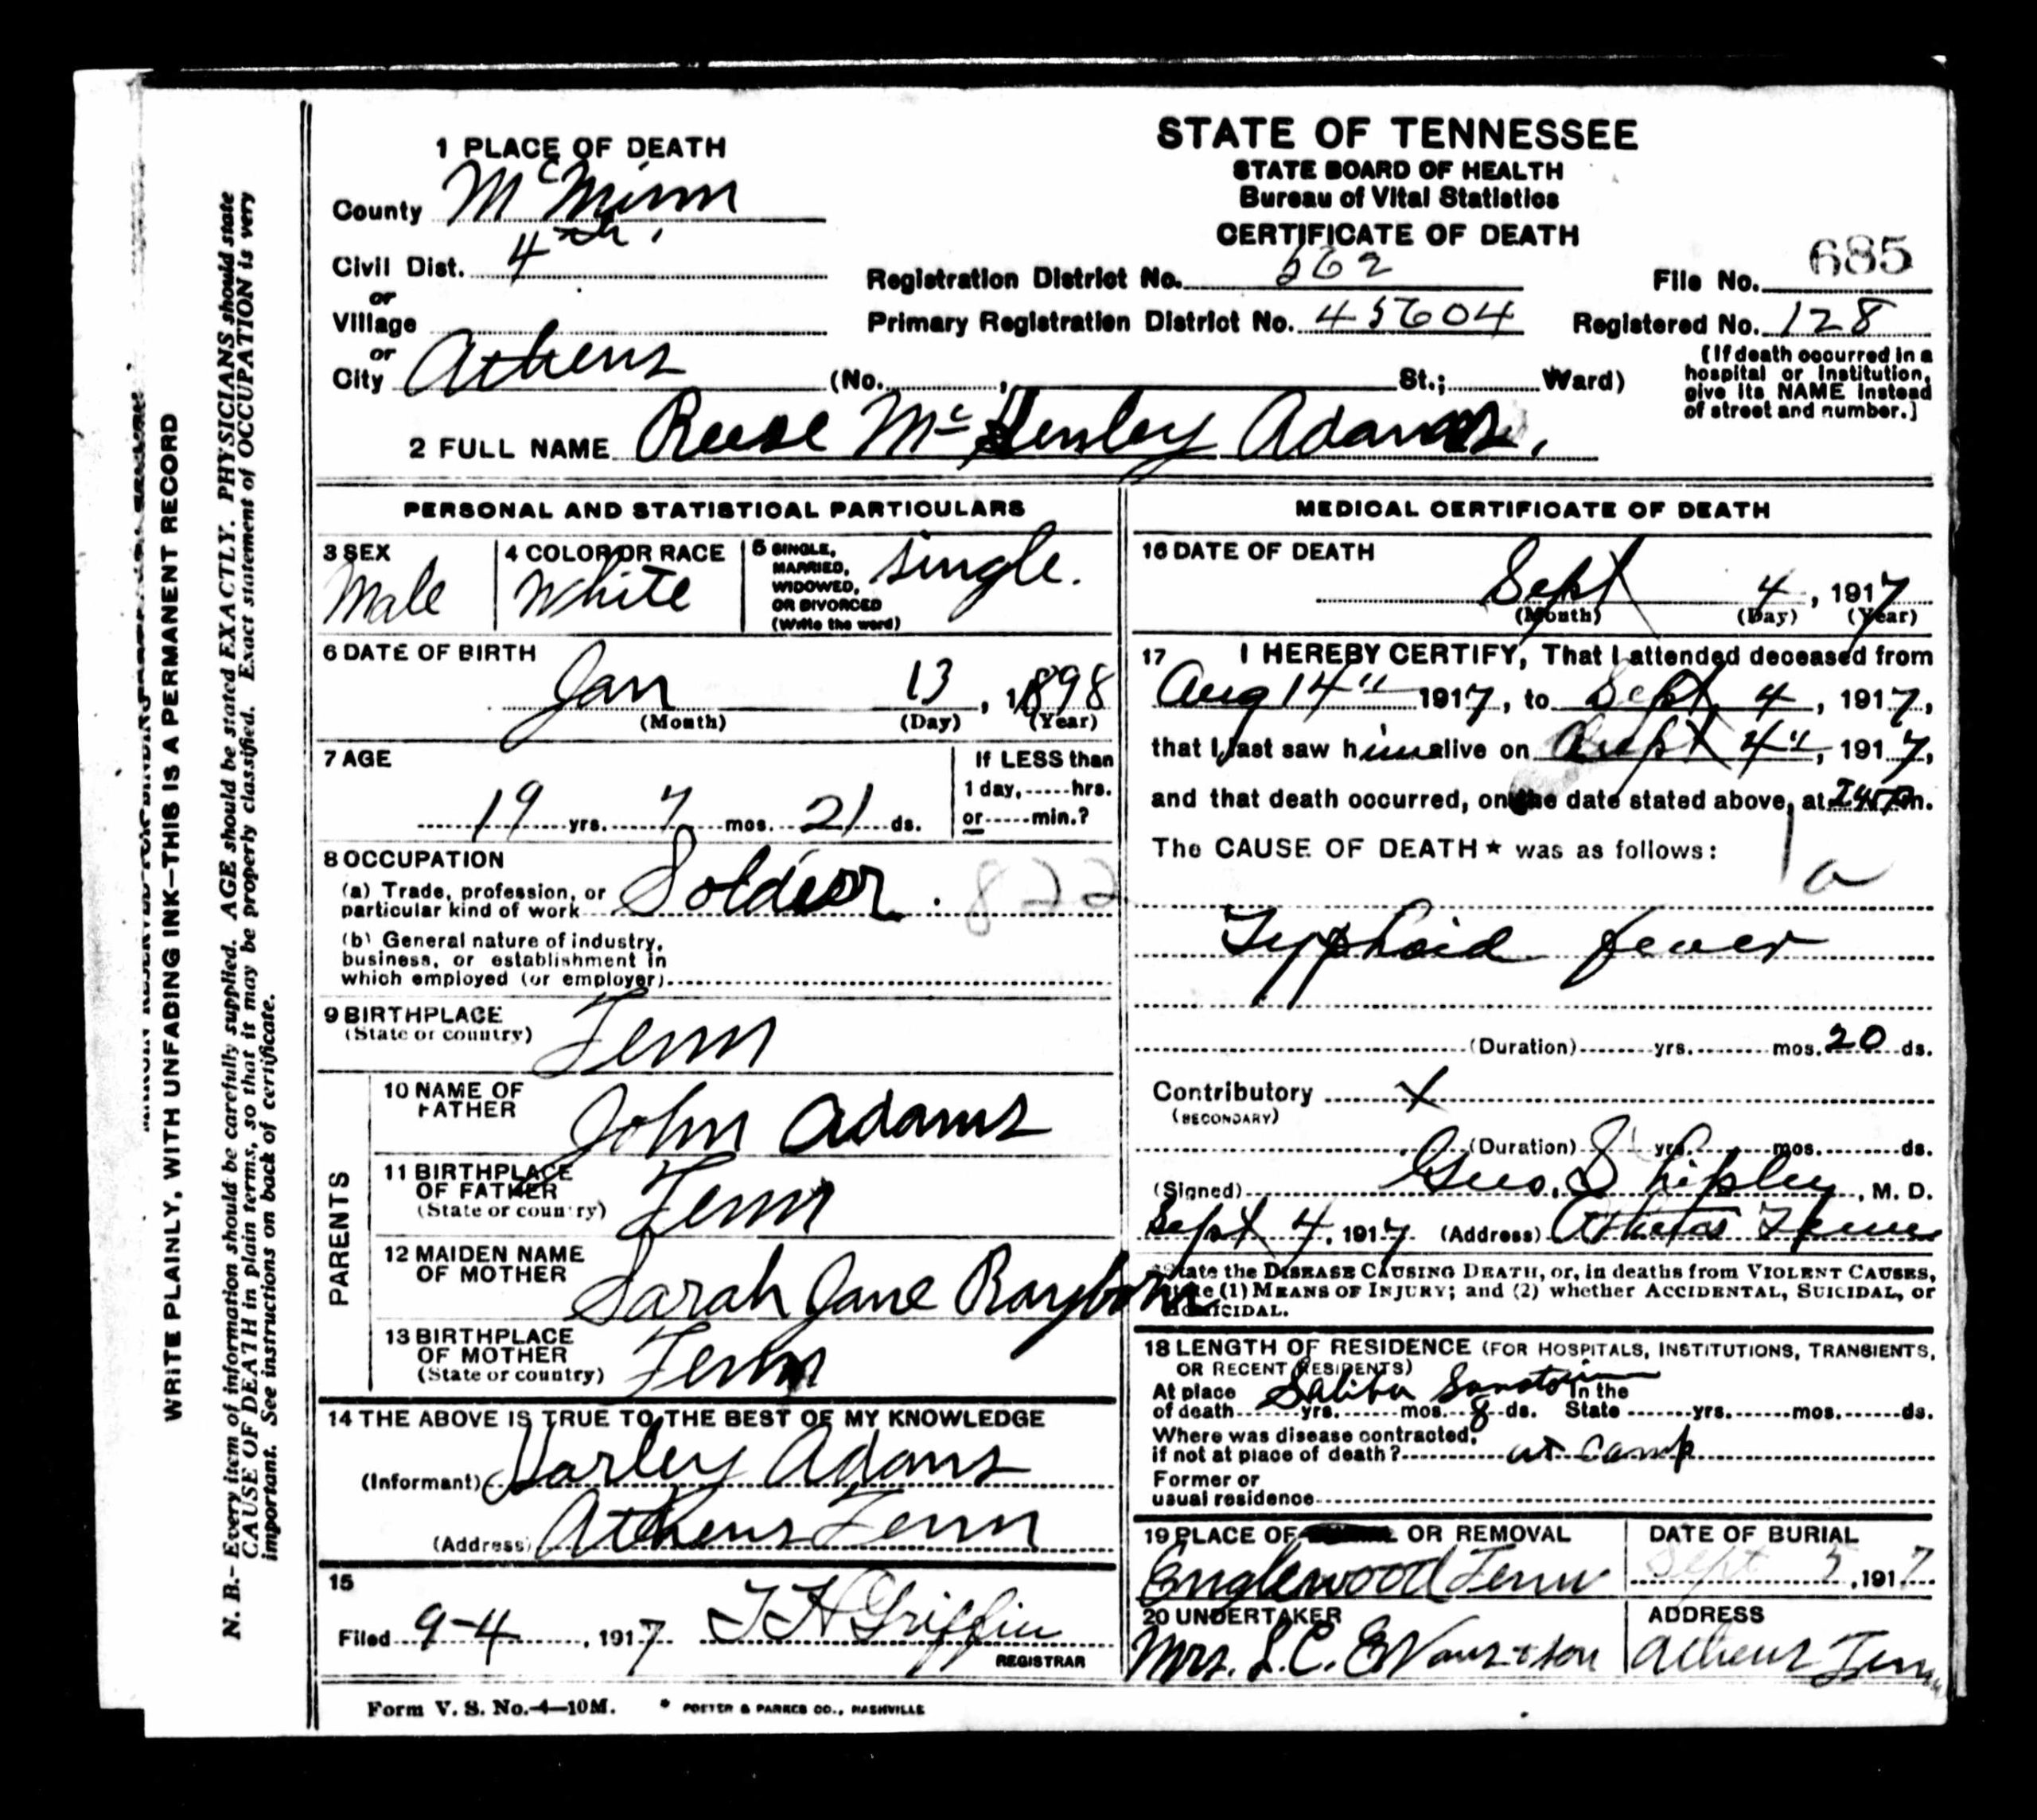 STATE OF TENNESSEE
STATE BOARD OF HEALTH
Bureau of Vital Statistics
CERTIFICATE OF DEATH
1 PLACE OF DEATH
County McMinn
Civil Dist. 4th
or
Village
or
City Athens (No. , St.; Ward)
Registration District No. 562
File No. 685
Primary Registration District No. 45604
Registered No. 128
(If death occurred in a
hospital or institution,
give its NAME instead
of street and number.]
2 FULL NAME Reese Mc Adams.
PERSONAL AND STATISTICAL PARTICULARS
3 SEX
Male
4 COLOR OR RACE
White
5 SINGLE,
MARRIED,
WIDOWED,
OR DIVORCED
(Write the word)
single.
6 DATE OF BIRTH
Jan 13, 1898
(Month) (Day) (Year)
7 AGE
19 yrs. 7 mos. 21 ds.
If LESS than
1 day, hrs.
or min.?
8 OCCUPATION
(a) Trade, profession, or
particular kind of work Soldier. 822
(b) General nature of industry,
business, or establishment in
which employed (or employer)
9 BIRTHPLACE
(State or country) Tenn
PARENTS
10 NAME OF
FATHER
John Adams
11 BIRTHPLACE
OF FATHER
(State or country)
Tenn
12 MAIDEN NAME
OF MOTHER
Sarah Jane Rayborn
13 BIRTHPLACE
OF MOTHER
(State or country)
Tenn
14 THE ABOVE IS TRUE TO THE BEST OF MY KNOWLEDGE
(Informant) Harley Adams
(Address) Athens Tenn
15
Filed 9-4, 1917 T H Griffin
REGISTRAR
MEDICAL CERTIFICATE OF DEATH
16 DATE OF DEATH
Sept 4, 1917
(Month) (Day) (Year)
17 I HEREBY CERTIFY, That I attended deceased from
Aug 14" 1917, to Sept 4, 1917,
that I last saw him alive on Sept 4", 1917,
and that death occurred, on the date stated above, at m.
The CAUSE OF DEATH* was as follows:
1 a
Typhoid fever
(Duration) yrs. mos. 20 ds.
Contributory X
(SECONDARY)
(Duration) yrs. mos. ds.
(Signed) Geo. Shipley, M. D.
Sept 4, 1917 (Address) Athens Tenn
*State the DISEASE CAUSING DEATH, or, in deaths from VIOLENT CAUSES,
state (1) MEANS OF INJURY; and (2) whether ACCIDENTAL, SUICIDAL, or
HOMICIDAL.
18 LENGTH OF RESIDENCE (FOR HOSPITALS, INSTITUTIONS, TRANSIENTS,
OR RECENT RESIDENTS)
At place In the
of death yrs. mos. 8 ds. State yrs. mos. ds.
Where was disease contracted,
if not at place of death? at camp
Former or
usual residence
19 PLACE OF OR REMOVAL
Englewood Tenn
DATE OF BURIAL
Sept 5, 1917
20 UNDERTAKER
Mrs. L.C. Evans & son
ADDRESS
Athens Tenn
Form V. S. No.-4-10M. * FOSTER & PARKES CO., NASHVILLE
WRITE PLAINLY, WITH UNFADING INK-THIS IS A PERMANENT RECORD
N. B.- Every item of information should be carefully supplied. AGE should be stated EXACTLY. PHYSICIANS should state
CAUSE OF DEATH in plain terms, so that it may be properly classified. Exact statement of OCCUPATION is very
important. See instructions on back of certificate.